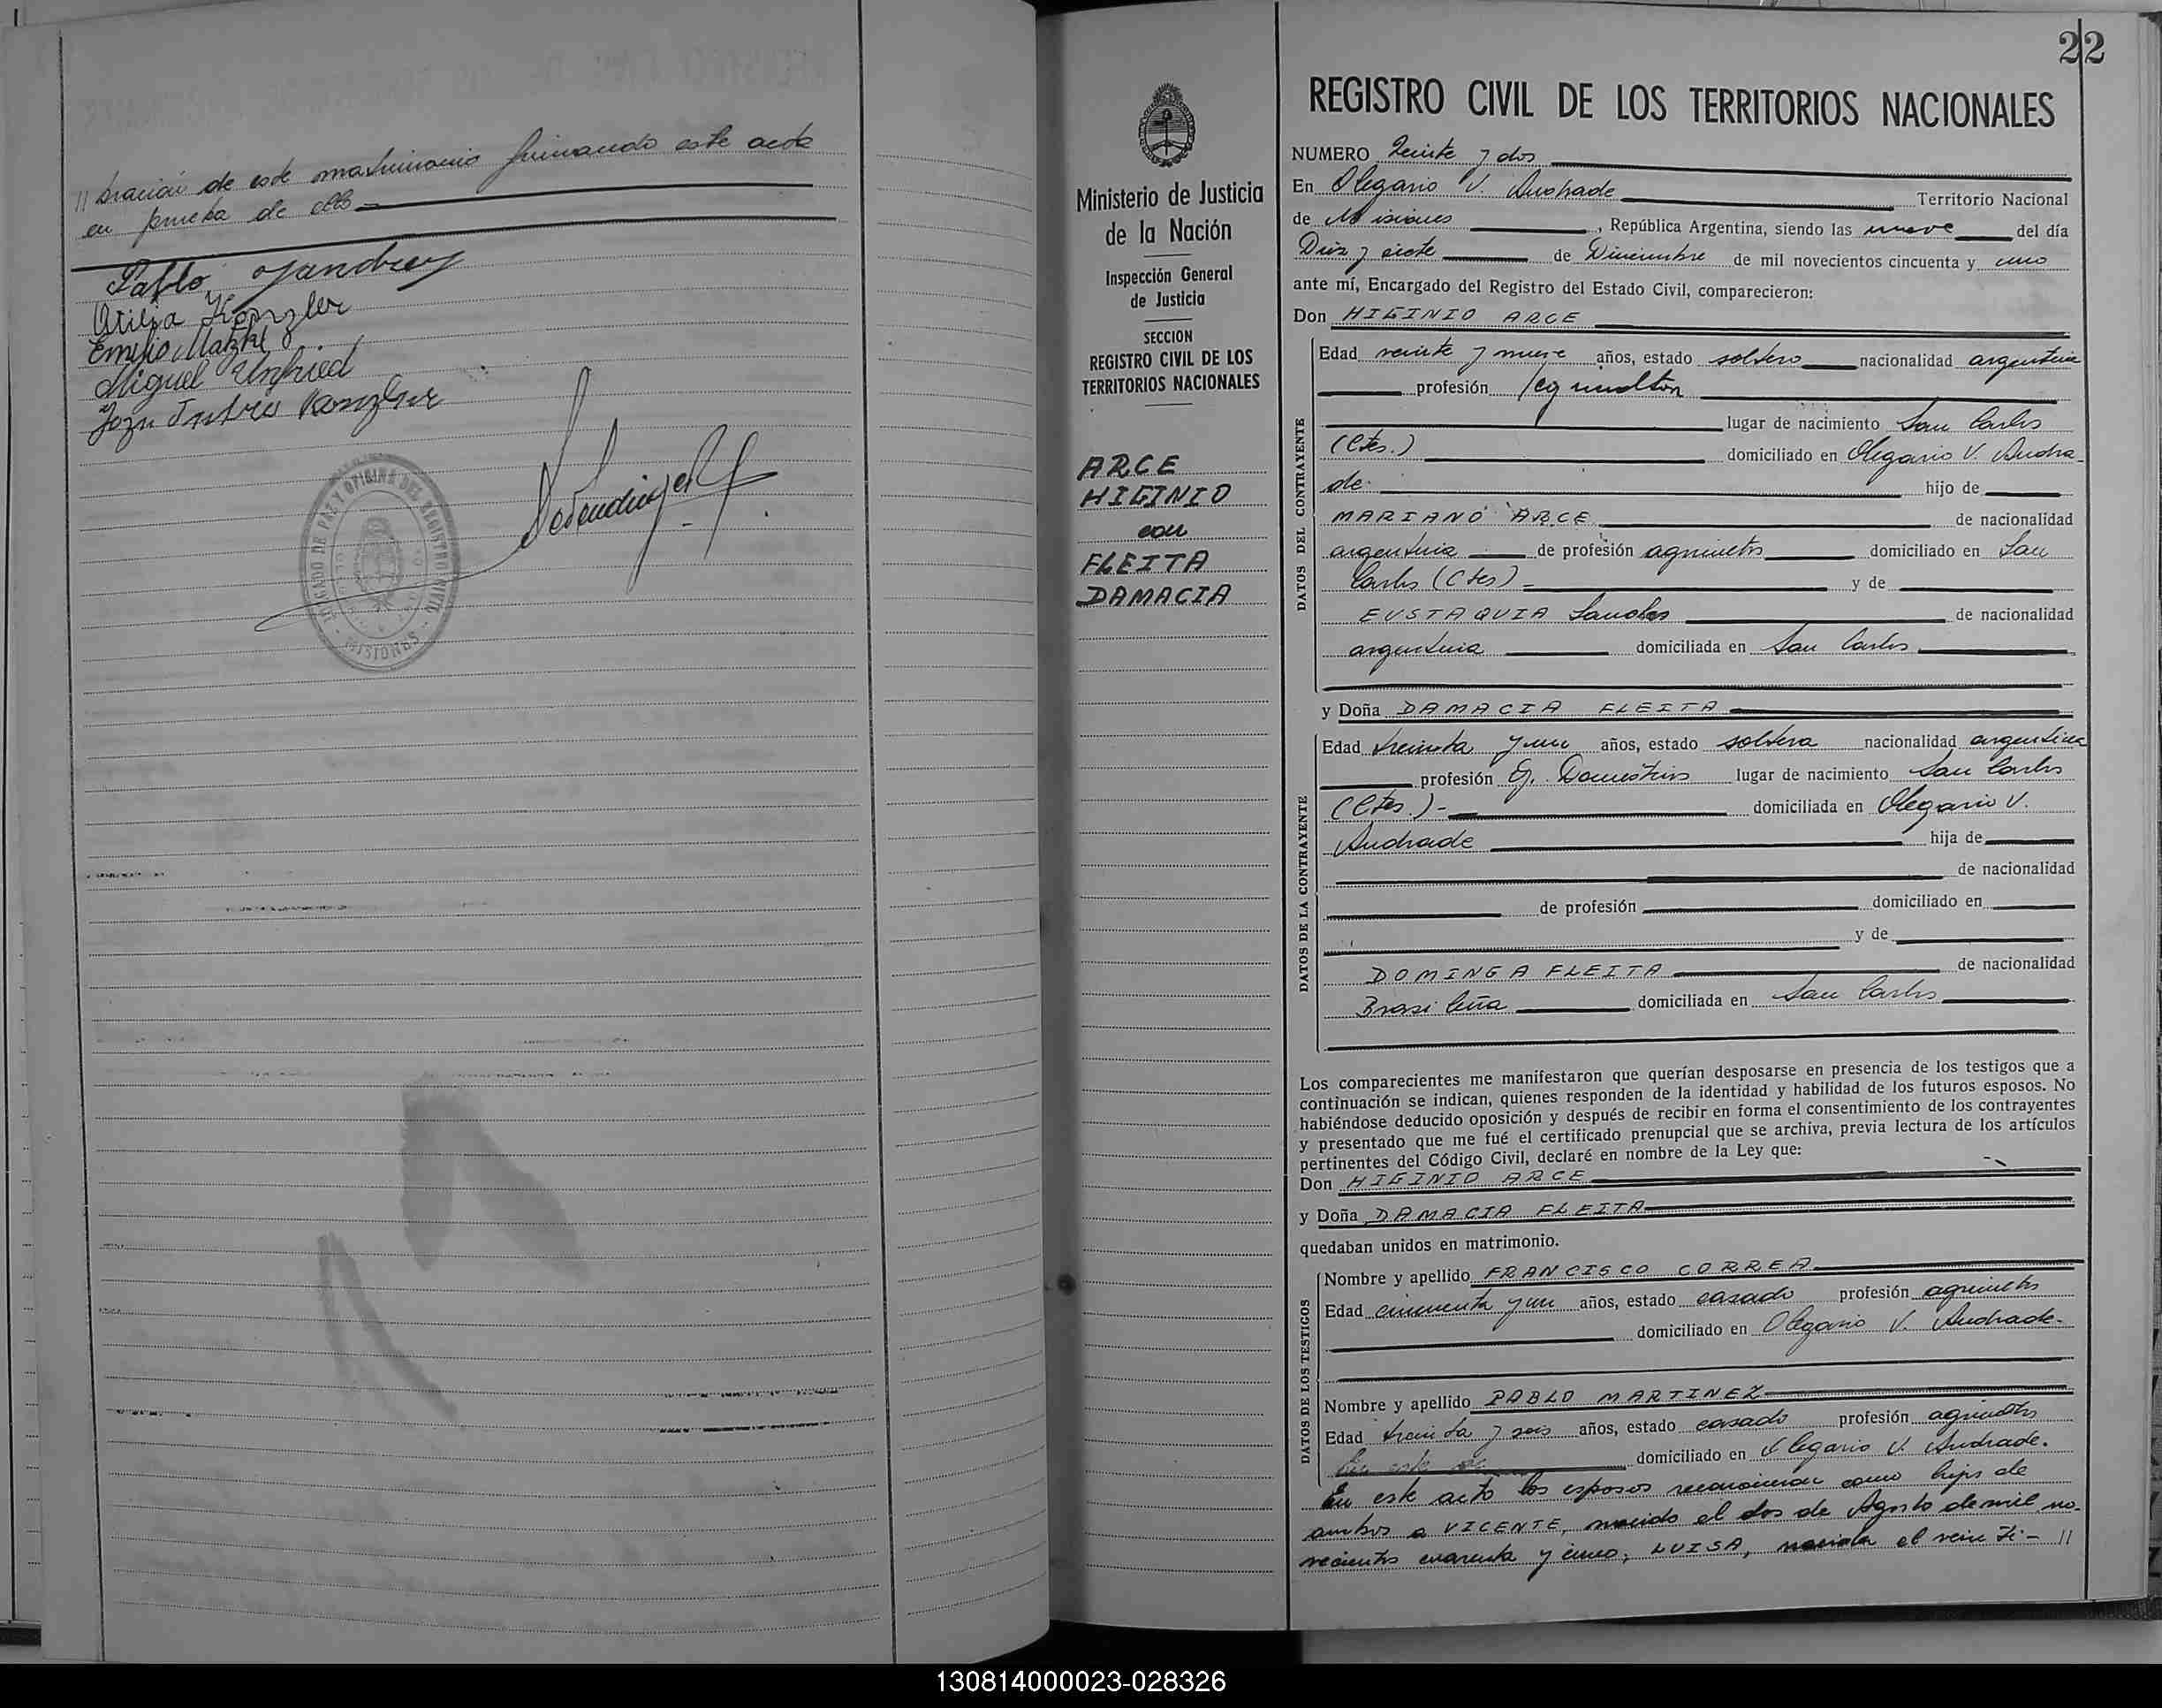 // bración de este matrimonio firmando este acta
en prueba de ello
Pablo
Otilia Konzler
Emilio Matzke
Miguel Unfried
JUZGADO DE PAZ Y OFICINA DEL REGISTRO CIVIL
MISIONES
22
Ministerio de Justicia
de la Nación
Inspección General
de Justicia
SECCION
REGISTRO CIVIL DE LOS
TERRITORIOS NACIONALES
ARCE
HIGINIO
con
FLEITA
DAMACIA
REGISTRO CIVIL DE LOS TERRITORIOS NACIONALES
NUMERO Veinte y dos
En Olegario V. Andrade Territorio Nacional
de Misiones , República Argentina, siendo las nueve del día
Diez y siete de Diciembre de mil novecientos cincuenta y uno
ante mí, Encargado del Registro del Estado Civil, comparecieron:
Don HIGINIO ARCE
DATOS DEL CONTRAYENTE
Edad veinte y nueve años, estado soltero nacionalidad argentina
profesión agricultor
lugar de nacimiento San Carlos
(Ctes.) domiciliado en Olegario V. Andra
de. hijo de
MARIANO ARCE de nacionalidad
argentina de profesión agricultor domiciliado en San
Carlos (Ctes) y de
EUSTAQUIA Sanches de nacionalidad
argentina domiciliada en San Carlos
y Doña DAMACIA FLEITA
DATOS DE LA CONTRAYENTE
Edad treinta y un años, estado soltera nacionalidad argentina
profesión Q. Domésticos lugar de nacimiento San Carlos
(Ctes.)- domiciliada en Olegario V.
Andrade hija de
de nacionalidad
de profesión domiciliado en
y de
DOMINGA FLEITA de nacionalidad
Brasileña domiciliada en San Carlos
Los comparecientes me manifestaron que querían desposarse en presencia de los testigos que a
continuación se indican, quienes responden de la identidad y habilidad de los futuros esposos. No
habiéndose deducido oposición y después de recibir en forma el consentimiento de los contrayentes
y presentado que me fué el certificado prenupcial que se archiva, previa lectura de los artículos
pertinentes del Código Civil, declaré en nombre de la Ley que:
Don HIGINIO ARCE
y Doña DAMACIA FLEITA
quedaban unidos en matrimonio.
DATOS DE LOS TESTIGOS
Nombre y apellido FRANCISCO CORREA
Edad cincuenta y un años, estado casado profesión agricultor
domiciliado en Olegario V. Andrade.
Nombre y apellido PABLO MARTINEZ
Edad treinta y seis años, estado casado profesión agricultor
En este domiciliado en Olegario V. Andrade.
En este acto los esposos reconocieron como hijos de
ambos a VICENTE, nacido el dos de Agosto de mil no-
vecientos cuarenta y cinco; LUISA, nacida el vein ti- //
130814000023-028326